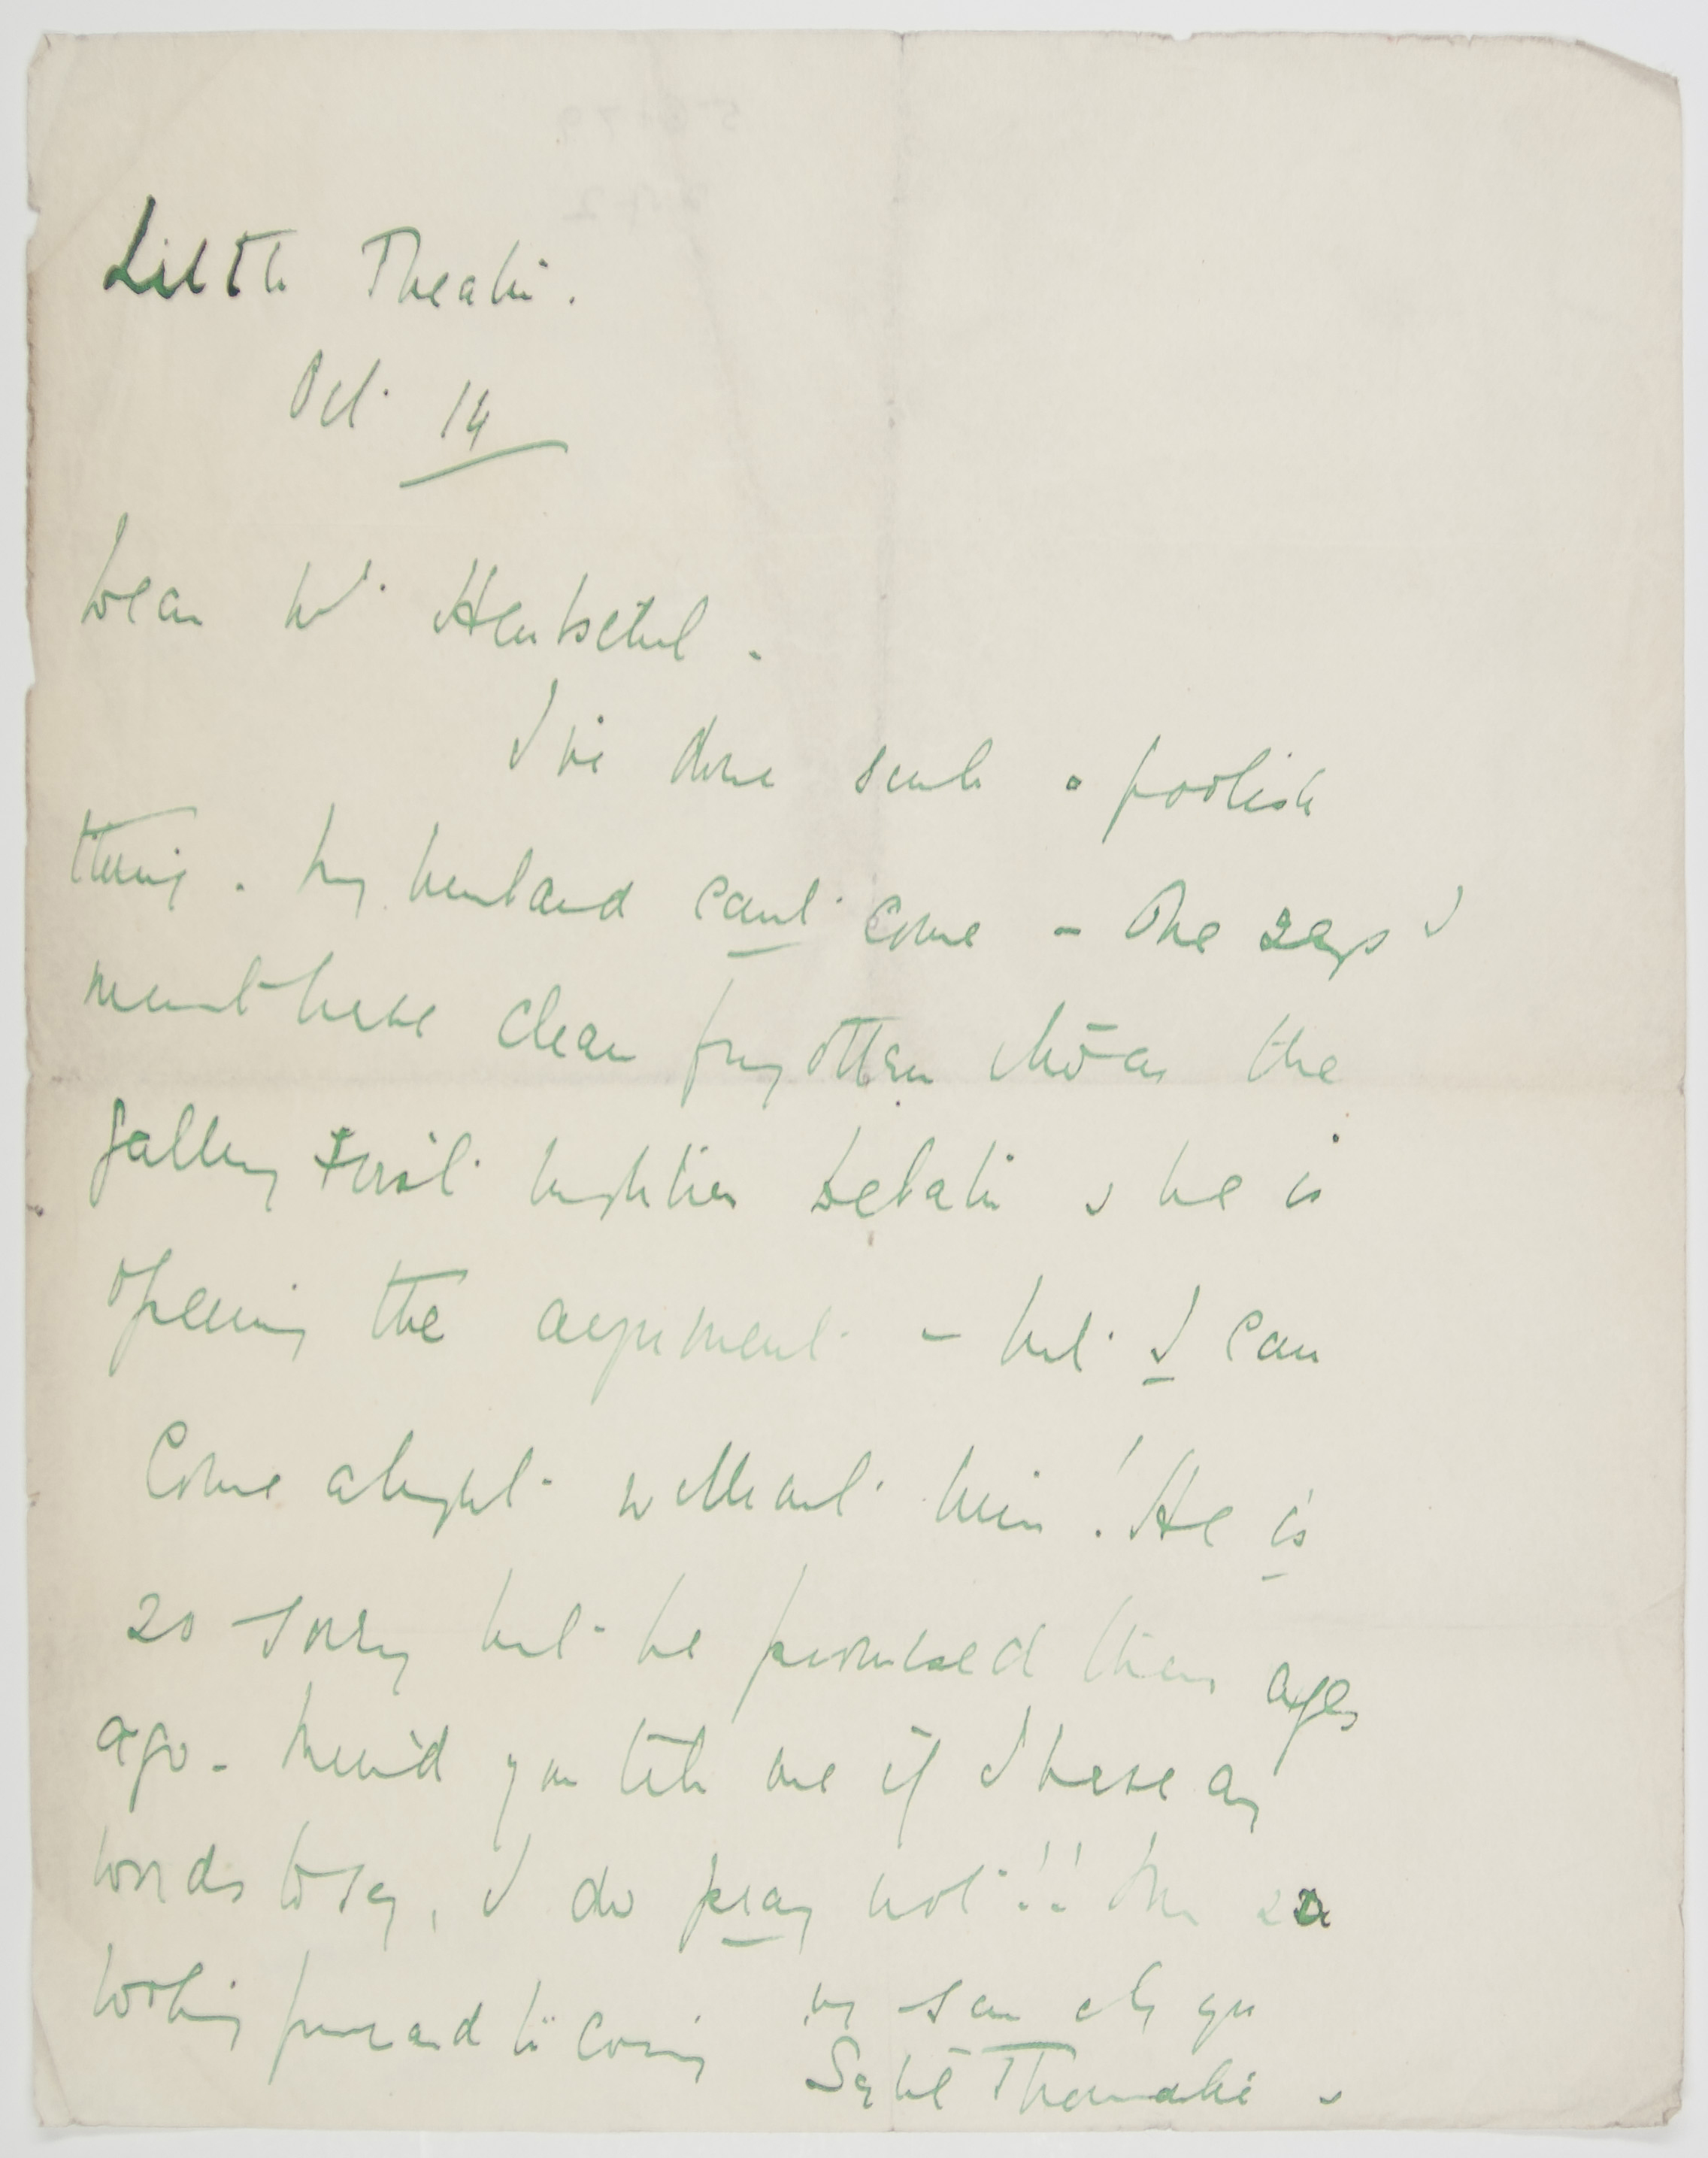 Little Theatre.
Oct. 14
Dear Mr Hentschel.
I've done such a foolish
thing. My husband can't come - The 29th I
must have clean forgotten was the
Gallery First Nighters debate & he is
opening the argument - but I can
come alright without him! He is
so sorry but he promised them ages
ago - Mind you tell me if I have any
words to say, I do pray not!! I'm so
looking forward to coming
Yrs sincerely
Sybil Thorndike